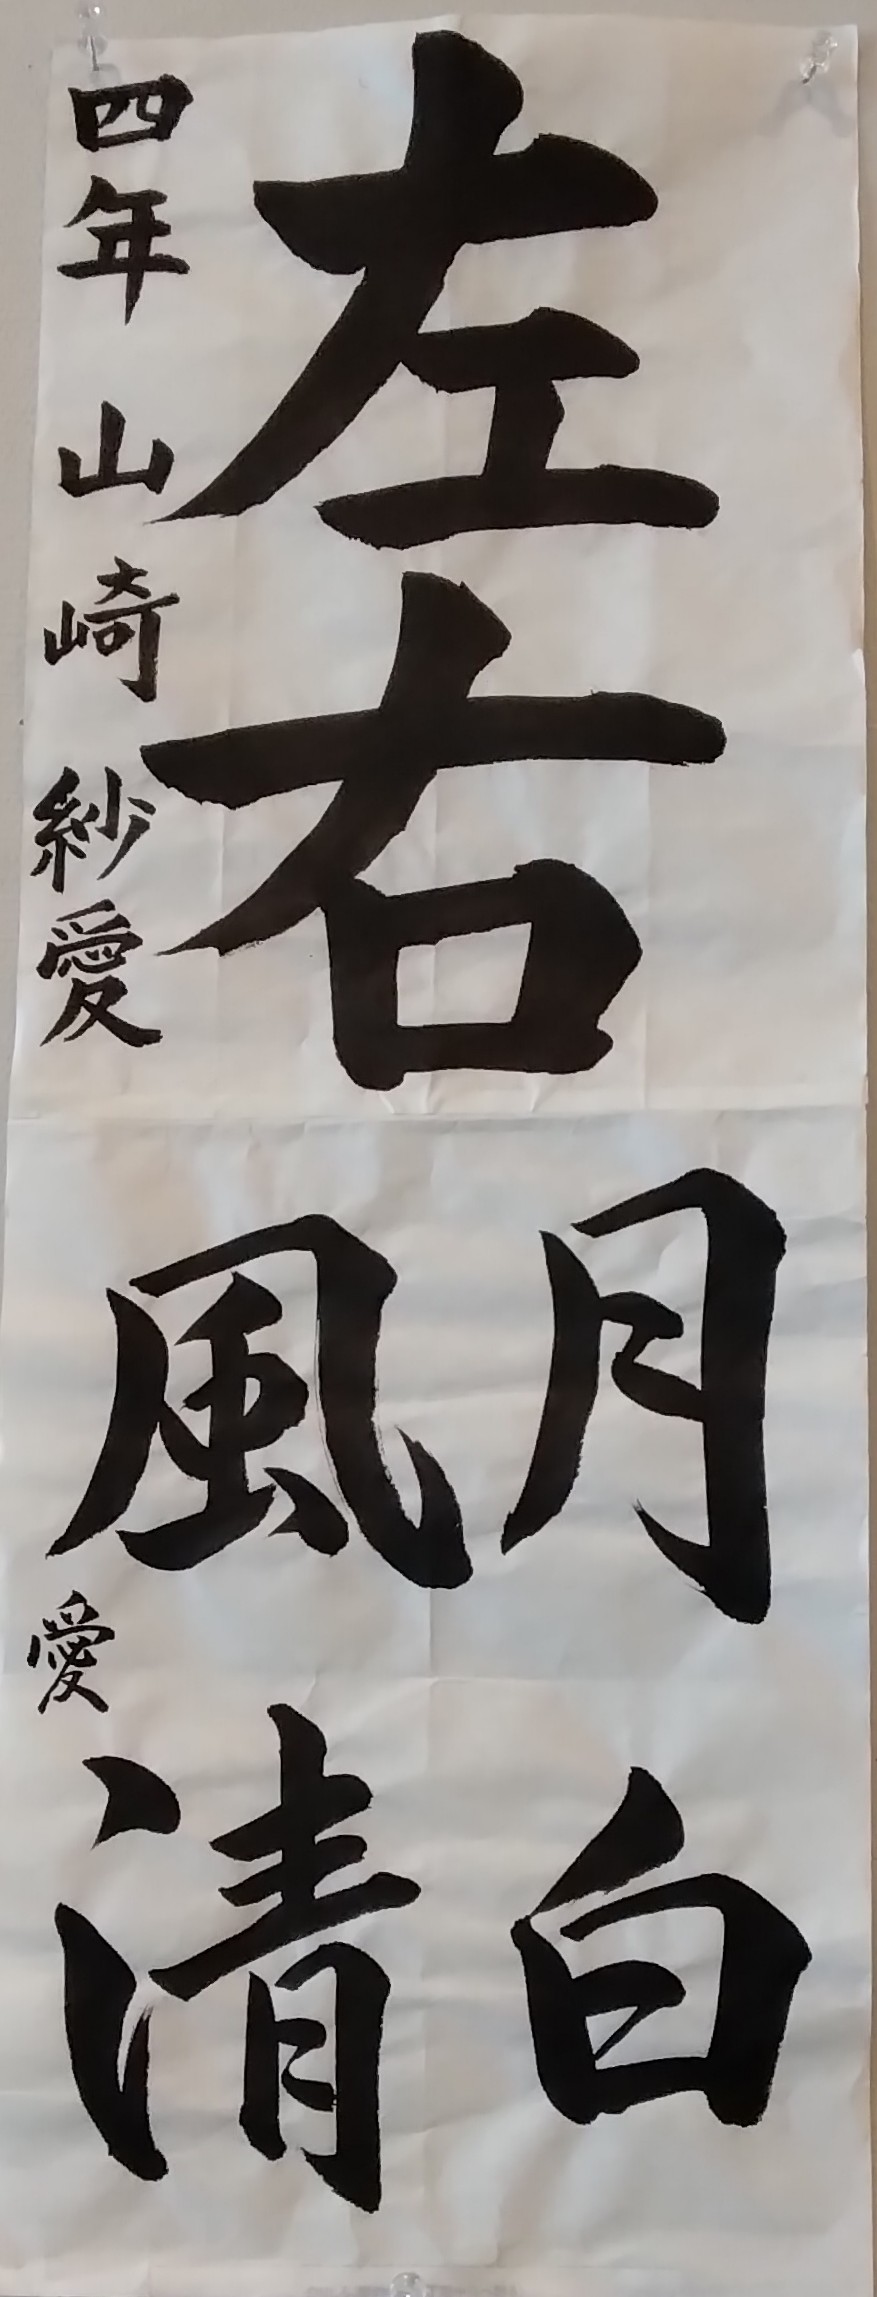 左右
四年 山崎 紗愛
月白
風清
愛